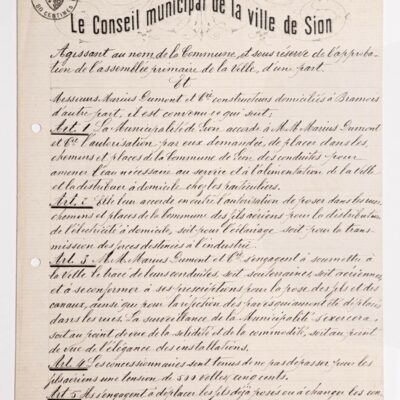 CENTIMES
Le Conseil municipal de la ville de Sion
Agissant au nom de la Commune, et sous réserve de l'approba-
tion de l'assemblée primaire de la ville, d'une part.
Et
Messieurs Marius Dumont et Cie constructeurs domiciliés à Bramois
d'autre part, il est convenu ce qui suit;
Art. 1 La Municipalité de Sion accorde à M.M. Marius Dumont
et Cie l'autorisation par eux demandée, de placer dans les
chemins et places de la Commune de Sion des conduites pour
amener l'eau nécessaire au service et à l'alimentation de la ville
et la distribuer à domicile chez les particuliers.
Art. 2 Elle leur accorde en outre l'autorisation de poser dans les rues,
chemins et places de la commune des fils aériens pour la distribution
de l'électricité à domicile, soit pour l'éclairage soit pour la trans-
mission des forces destinées à l'industrie.
Art. 3 M.M. Marius Dumont et Cie s'engagent à soumettre à
la ville le tracé de leurs conduites, soit souterraines soit aériennes,
et à se conformer à ses prescriptions pour la pose des fils et des
canaux, ainsi que pour la réfection des pavés qui auront été déplacés
dans les rues. La surveillance de la Municipalité s'exercera
soit au point de vue de la solidité et de la commodité, soit au point
de vue de l'élégance des installations.
Art. 4 Les concessionnaires sont tenus de ne pas dépasser pour les
fils aériens une tension de 500 volts, cinq cents.
Art. 5 Ils s'engagent à déplacer les fils déjà posés ou à changer les con-